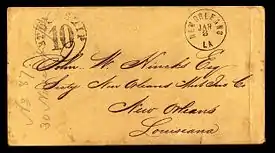 STEAM
10
NEW ORLEANS
JAN
8
LA
John W. Hincks Esq
Secty New Orleans Mut Ins Co
New Orleans
Louisiana